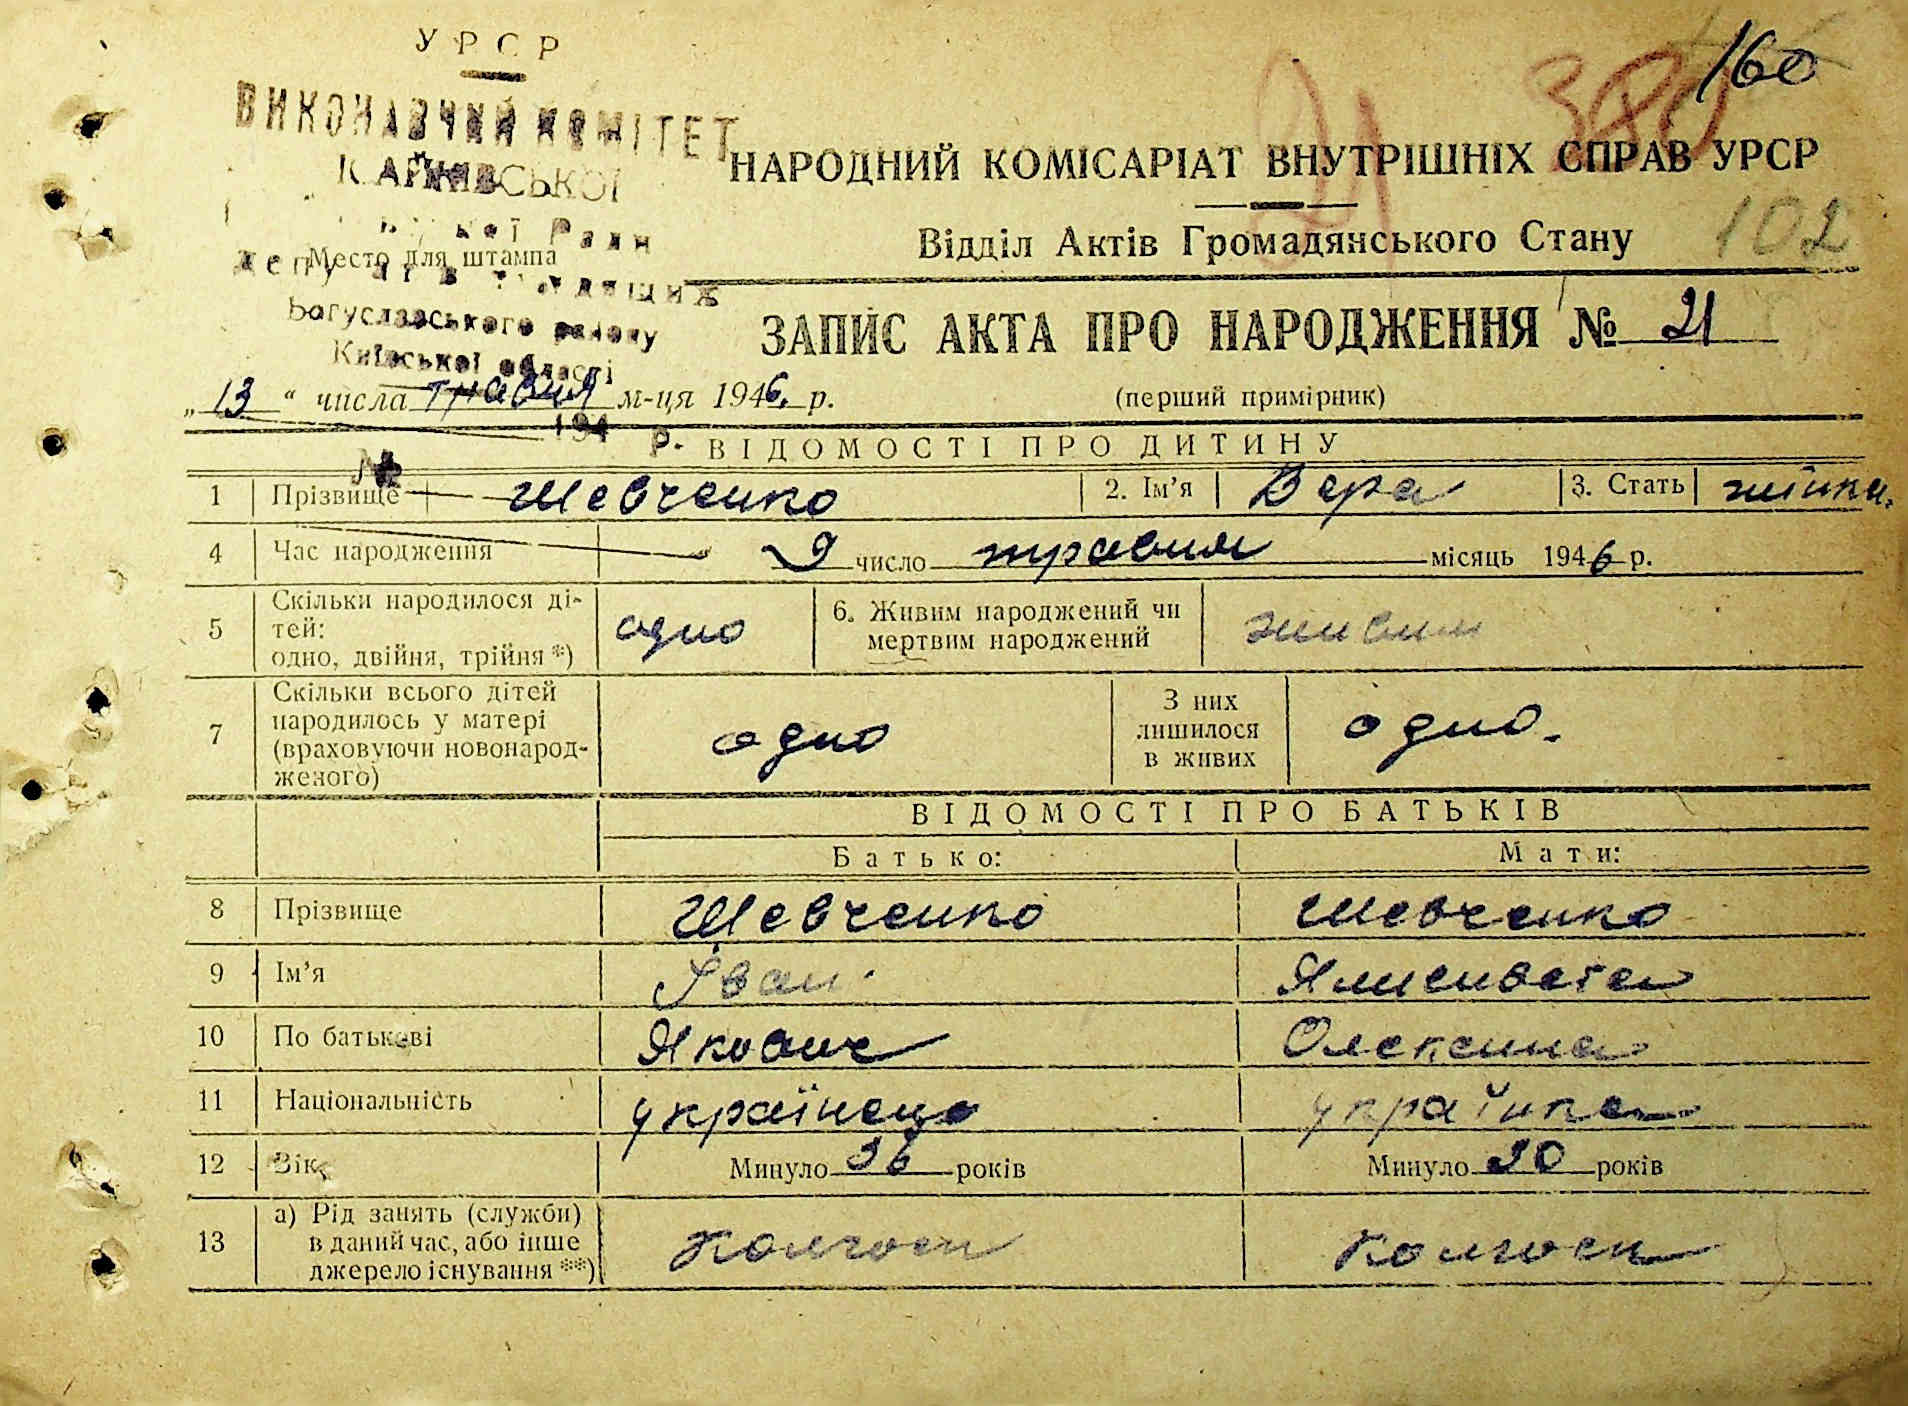 УРСР
160
380
21
ВИКОНАВЧИЙ КОМІТЕТ
НАРОДНИЙ КОМІСАРІАТ ВНУТРІШНІХ СПРАВ УРСР
Ради
102
Відділ Актів Громадянського Стану
Место для штампа
Богуславського району
ЗАПИС АКТА ПРО НАРОДЖЕННЯ № 21
Київської області
„13“ числа травня м-ця 1946 р.
(перший примірник)
194 р.
ВІДОМОСТІ ПРО ДИТИНУ
№
1 Прізвище Шевченко 2. Ім’я Вера 3. Стать жінка.
4 Час народження 9 число травня місяць 1946 р.
5 Скільки народилося ді-
тей:
одно, двійня, трійня *) одно 6. Живим народжений чи
мертвим народжений живим
7 Скільки всього дітей
народилось у матері
(враховуючи новонарод-
женого) одно З них
лишилося
в живих одно.
ВІДОМОСТІ ПРО БАТЬКІВ
Батько: Мати:
8 Прізвище Шевченко Шевченко
9 Ім’я Іван
10 По батькові Якович
11 Національність українець українка
12 Вік Минуло 36 років Минуло 30 років
13 а) Рід занять (служби)
в даний час, або інше
джерело існування **) колгосп колгосп